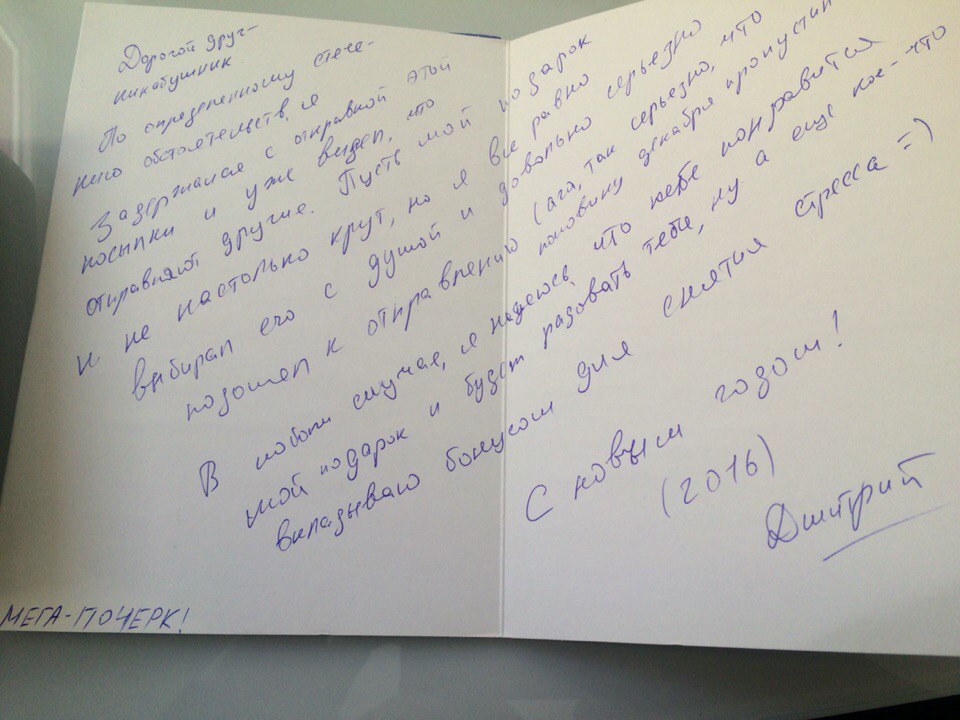 Дорогой друг-
пикабушник.
По определенному стече-
нию обстоятельств, я
задержался с отправкой этой
посылки и уже видел, что
отправляют другие. Пусть мой подарок
и не настолько крут, но я все равно
выбирал его с душой и довольно серьезно
подошел к отправлению (ага, так серьезно, что
половину декабря пропустил
В любом случае, я надеюсь, что тебе понравится
мой подарок и будет радовать тебя, ну а еще кое-что
вкладываю бонусом для снятия стресса =)
С новым годом!
(2016)
Дмитрий
МЕГА-ПОЧЕРК!